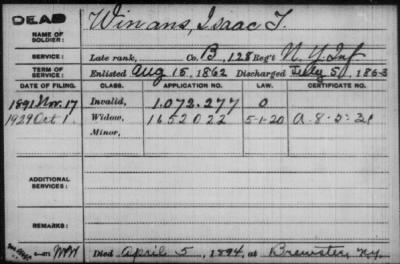 DEAD
NAME OF SOLDIER: Winans, Isaac T.
SERVICE: Late rank, Co. B, 128 Reg't N.Y. Inf
TERM OF SERVICE: Enlisted Aug 15, 1862 Discharged 5, 1863
DATE OF FILING. CLASS. APPLICATION NO. LAW. CERTIFICATE NO.
1891 Nov. 17 Invalid, 1.072.277 0
1929 Oct 1. Widow, 1652022 5-1-20
Minor,
ADDITIONAL SERVICES:
REMARKS:
Died April 5, 1894, at Brewster N.Y.